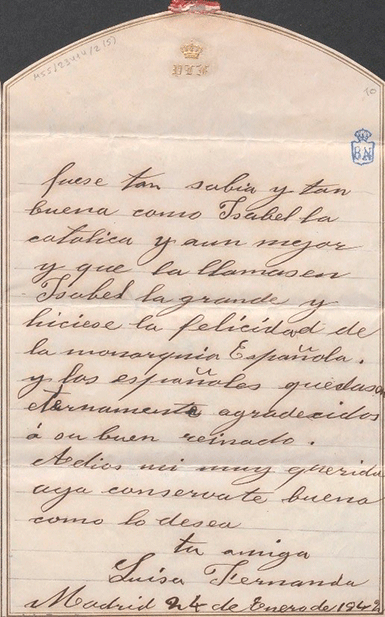 MSS/23414/2(5)
10
BN
fuese tan sabia y tan
buena como Isabel la
catolica y aun mejor
y que la llamasen
Isabel la grande y
hiciese la felicidad de
la monarquia Española.
y los españoles quedasen
eternamente agradecidos
á su buen reinado.
Adios mi muy querida
aya conservate buena
como lo desea
tu amiga
Luisa Fernanda
Madrid 24 de Enero de 1842